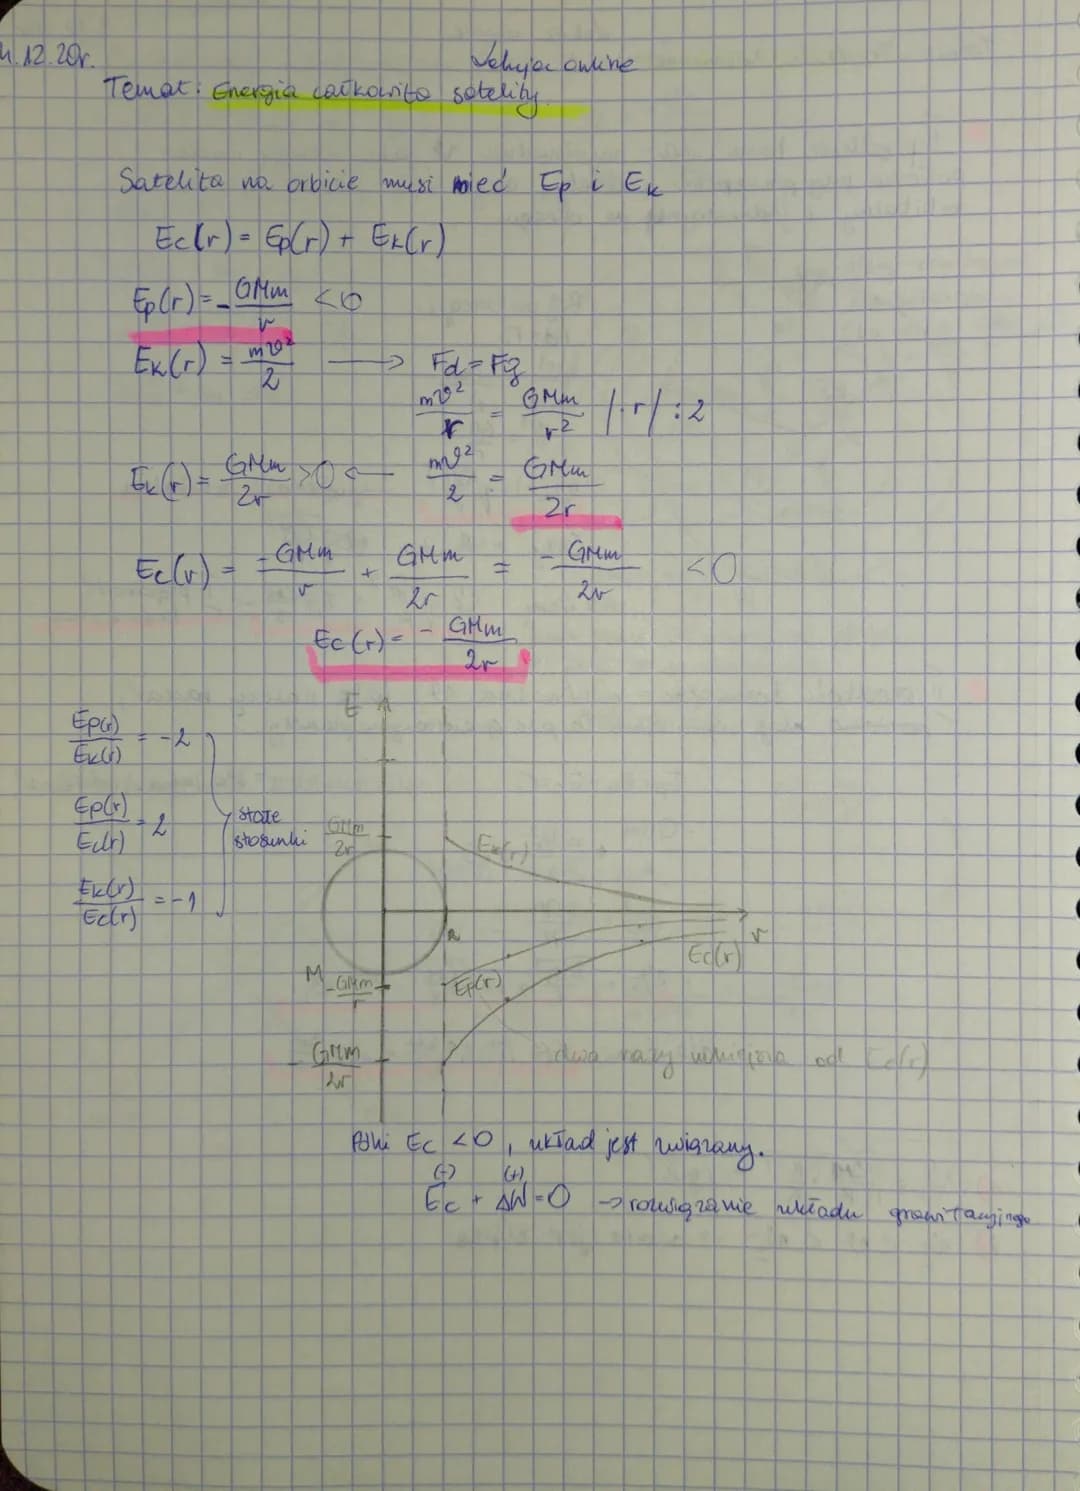 4.12.20r.
Lekcja online
Temat: Energia całkowita satelity.
Satelita na orbicie musi mieć Ep i Ek
Ec(r) = Ep(r) + Ek(r)
Ep(r) = - GMm/r < 0
Ek(r) = mv²/2 → Fd = Fg
mv²/r = GMm/r² /·r/ :2
Ek(r) = GMm/2r > 0 ← mv²/2 = GMm/2r
Ec(r) = -GMm/r + GMm/2r = - GMm/2r < 0
Ec(r) = - GMm/2r
E
Ep(r)/Ek(r) = -2
Ep(r)/Ec(r) = 2
stałe
stosunki
Ek(r)/Ec(r) = -1
GMm/2r
Ek(r)
R
r
Ec(r)
M
-GMm/r
Ep(r)
- GMm/2r
dwa razy mniejsza od Ec(r)
Póki Ec < 0, układ jest związany.
(-) (+)
Ec + ΔW = 0 → rozwiązanie układu grawitacyjnego